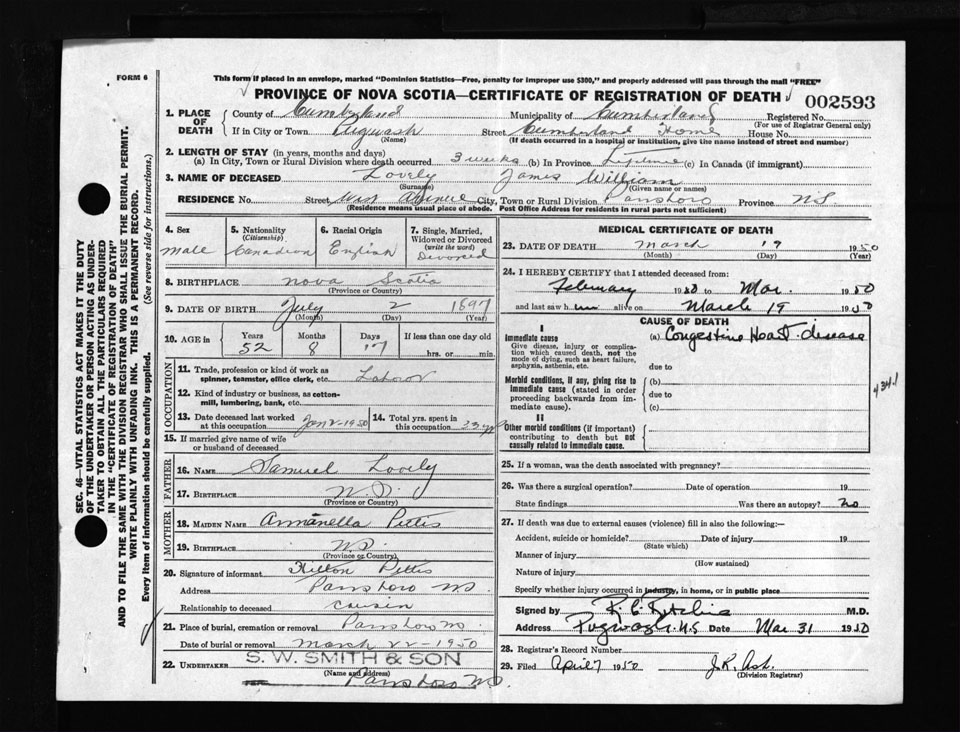 FORM 6
This form if placed in an envelope, marked "Dominion Statistics—Free, penalty for improper use $300," and properly addressed will pass through the mail "FREE"
PROVINCE OF NOVA SCOTIA—CERTIFICATE OF REGISTRATION OF DEATH
002593
SEC. 46—VITAL STATISTICS ACT MAKES IT THE DUTY
OF THE UNDERTAKER OR PERSON ACTING AS UNDER-
TAKER TO OBTAIN ALL THE PARTICULARS REQUIRED
IN THE "CERTIFICATE OF REGISTRATION OF DEATH"
AND TO FILE THE SAME WITH THE DIVISION REGISTRAR WHO SHALL ISSUE THE BURIAL PERMIT.
WRITE PLAINLY WITH UNFADING INK. THIS IS A PERMANENT RECORD.
Every item of information should be carefully supplied. (See reverse side for instructions.)
1. PLACE OF DEATH
County of Cumberland Municipality of Cumberland Registered No.
(For use of Registrar General only)
If in City or Town Pugwash Street Cumberland Home House No.
(Name) (If death occurred in a hospital or institution, give the name instead of street and number)
2. LENGTH OF STAY (in years, months and days)
(a) In City, Town or Rural Division where death occurred 3 weeks (b) In Province Lifetime (c) In Canada (if immigrant)
3. NAME OF DECEASED Lovely James William
(Surname) (Given name or names)
RESIDENCE No. Street West Avenue City, Town or Rural Division Parrsboro Province N.S.
(Residence means usual place of abode. Post Office Address for residents in rural parts not sufficient)
4. Sex Male
5. Nationality (Citizenship) Canadian
6. Racial Origin English
7. Single, Married, Widowed or Divorced (write the word) Divorced
8. BIRTHPLACE Nova Scotia
(Province or Country)
9. DATE OF BIRTH July 2 1897
(Month) (Day) (Year)
10. AGE in Years 52 Months 8 Days 17 If less than one day old hrs. or min.
OCCUPATION
11. Trade, profession or kind of work as spinner, teamster, office clerk, etc. Labor
12. Kind of industry or business, as cotton-mill, lumbering, bank, etc.
13. Date deceased last worked at this occupation Jan 2-1950
14. Total yrs. spent in this occupation 33 yrs
15. If married give name of wife or husband of deceased
FATHER
16. NAME Samuel Lovely
17. BIRTHPLACE N.S.
(Province or Country)
MOTHER
18. MAIDEN NAME Annanella Pettis
19. BIRTHPLACE N.S.
(Province or Country)
20. Signature of informant Hilton Pettis
Address Parrsboro N.S.
Relationship to deceased Cousin
21. Place of burial, cremation or removal Parrsboro N.S.
Date of burial or removal March 22-1950
22. UNDERTAKER S. W. SMITH & SON
(Name and address) Parrsboro N.S.
MEDICAL CERTIFICATE OF DEATH
23. DATE OF DEATH March 19 1950
(Month) (Day) (Year)
24. I HEREBY CERTIFY that I attended deceased from:
February 1950 to Mar. 1950
and last saw him alive on March 19 1950
CAUSE OF DEATH
I
Immediate cause
Give disease, injury or complication which caused death, not the mode of dying, such as heart failure, asphyxia, asthenia, etc.
(a) Congestive Heart disease
due to
Morbid conditions, if any, giving rise to immediate cause (stated in order proceeding backwards from immediate cause).
(b)
due to
(c)
434.1
II
Other morbid conditions (if important) contributing to death but not causally related to immediate cause.
25. If a woman, was the death associated with pregnancy?
26. Was there a surgical operation? Date of operation 19
State findings Was there an autopsy? No
27. If death was due to external causes (violence) fill in also the following:—
Accident, suicide or homicide? Date of injury 19
(State which)
Manner of injury
(How sustained)
Nature of injury
Specify whether injury occurred in industry, in home, or in public place
Signed by R. C. Ritchie M.D.
Address Pugwash N.S Date Mar 31 1950
28. Registrar's Record Number
29. Filed April 7 1950 J.R. Ash.
(Division Registrar)